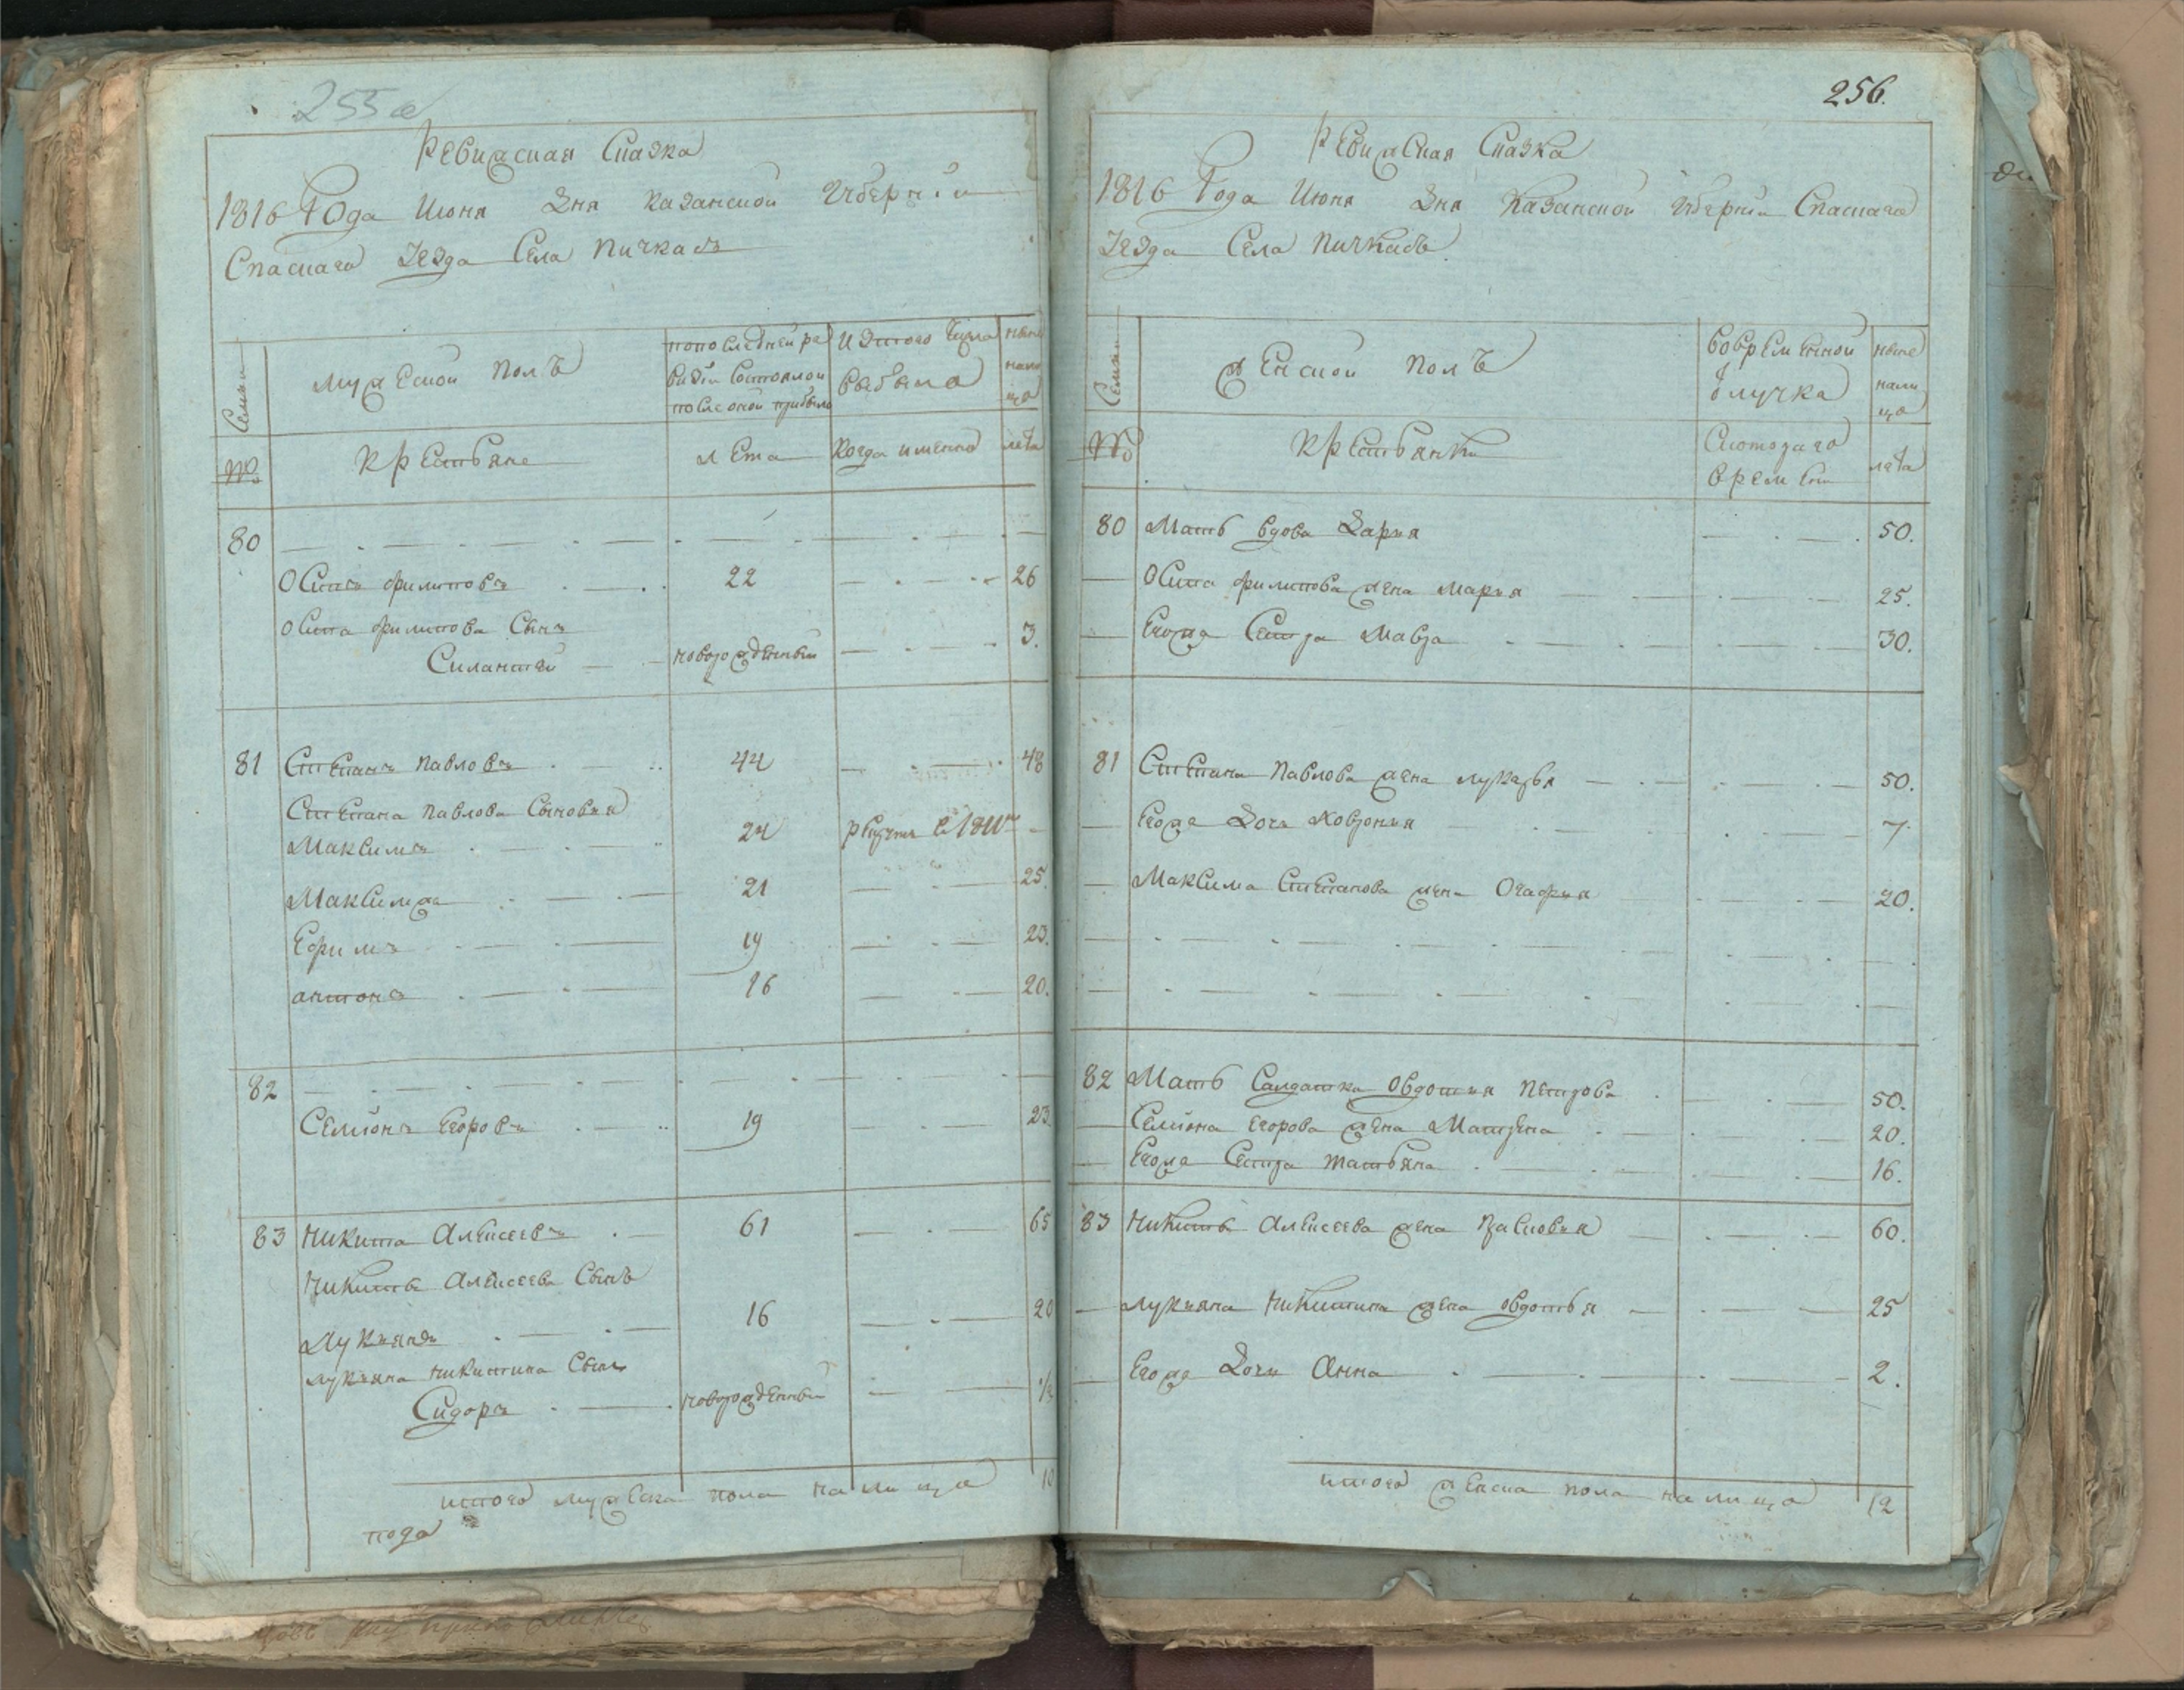 255 об
Ревижская Сказка
1816 Года Июня Дня Казанской Губернiи
Спаскаго Уезда Села Пичкасъ
Семьи
Мужеской Полъ
попоследней ре
визiи Состоялои
после оной прибыло
Изтого Числа
выбыло
ныне
нали
цо
№
Крестьяне
лета
Когда именно
лета
80
Осипъ Филиповъ 22 26
Осипа Филипова Сынъ
Силантей новорожденный 3.
81 Степанъ Павловъ 44 48
Степана Павлова Сыновья
Максимъ 24 рекрутъ в 1811м
Максимже 21 25.
Ефимъ 19 23.
антонъ 16 20.
82
Семiонъ Егоровъ 19 23
83 Никита Алексеевъ 61 65
Никиты Алексеева Сынъ
Лукиянъ 16 20
Лукияна Никитина Сынъ
Сидоръ новорожденный 1/2
итого мужеска пола налицо 10
пода
256.
Ревижская Сказка
1816 Года Июня Дня Казанской Губернiи Спаскаго
Уезда Села Пичкасъ
Семьи
Женской Полъ
вовременной
Отлучке
ныне
нали
цо
№
Крестьянки
Скотораго
времени
лета
80 Мать вдова Дарья 50.
Осипа Филипова жена Марья 25.
Егоже Сестра Мавра 30.
81 Степана Павлова жена лукерья 50.
Егоже Дочь Ховронья 7.
Максима Степанова жена Огафья 20.
82 Мать Салдатка Овдотья Петрова 50.
Семiона Егорова жена Матрена 20.
Егоже Сестра татьяна 16.
83 Никиты Алексеева жена Прасковья 60.
Лукияна Никитина жена овдотья 25
Егоже Дочь Анна 2.
итого женска пола налицо 12